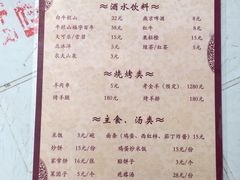 ≈酒水饮料≈
白牛栏山 32元 燕京啤酒 8元
牛栏山福字百年 180元 红牛 8元
大可乐/雪碧 15元 果粒橙 15元
北冰洋 5元 绿茶/红茶 5元
农夫山泉 3元
≈烧烤类≈
羊肉串 5元 考全羊（预定） 1280元
烤羊腿 160元 烤羊排 180元
≈主食、汤类≈
米饭 3元/碗 面条（鸡蛋、西红柿、茄丁肉酱）15元
炒饼 15元/份 鸡蛋炒米饭 15元
家常饼 16元/张 贴饼子 2元/个
菜团子 5元/个 疙瘩汤 28元/份